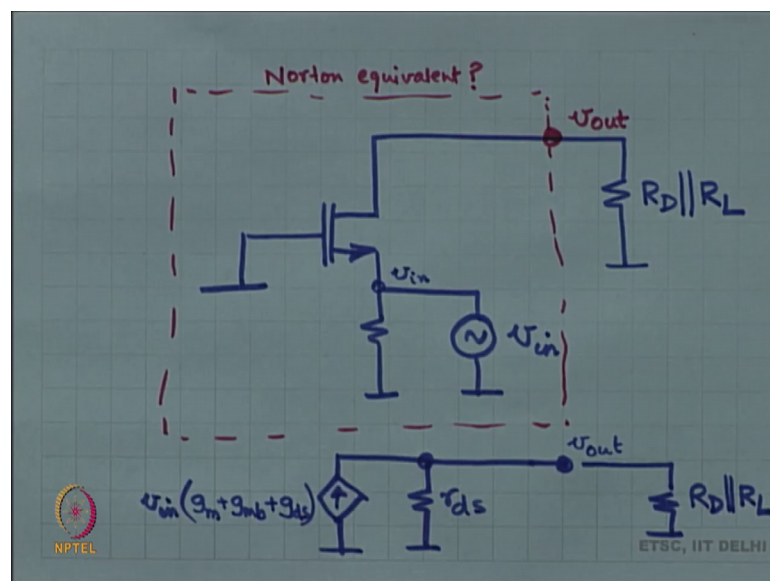 Norton equivalent?
vout
R_D||R_L
vin
vin
vout
vin(gm+gmb+gds)
rds
R_D||R_L
NPTEL
ETSC, IIT DELHI